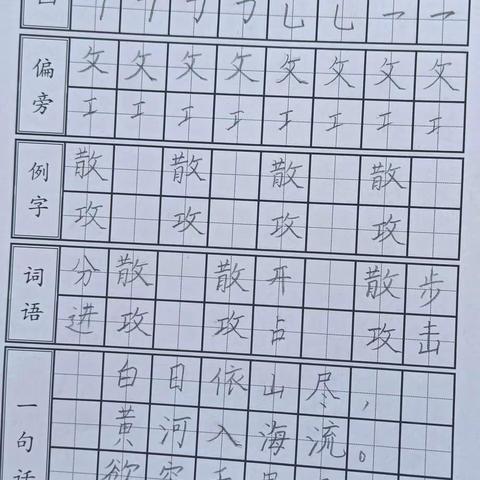 偏旁
攵 攵 攵 攵 攵 攵 攵 攵
工 工 工 工 工 工 工 工
例字
散 散 散 散
攻 攻 攻 攻
词语
分散 散开 散步
进攻 攻占 攻击
一句话
白日依山尽，
黄河入海流。
欲穷